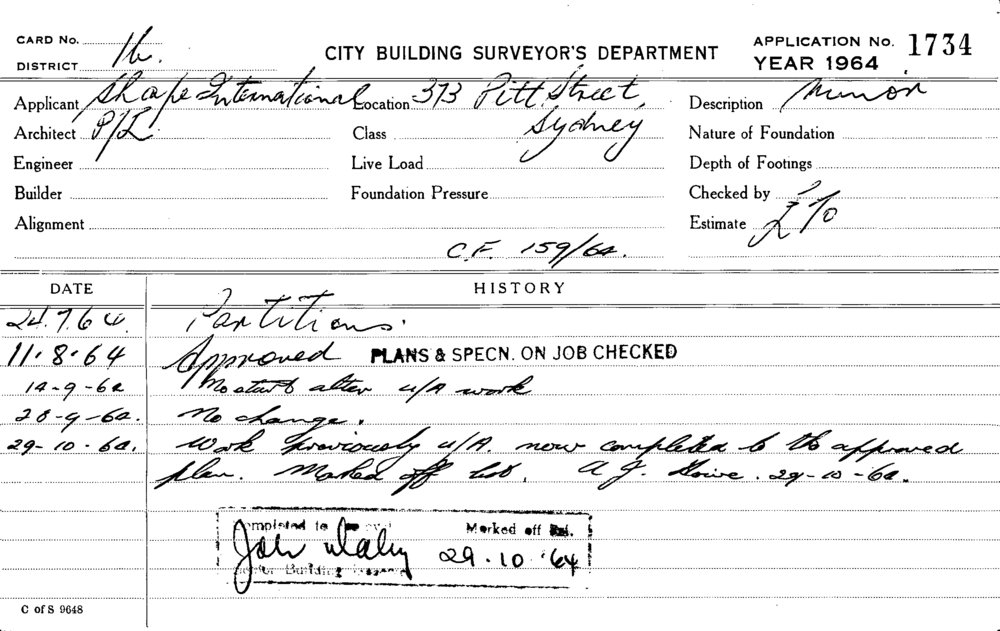 CARD No.
DISTRICT 16.
CITY BUILDING SURVEYOR'S DEPARTMENT
APPLICATION No. 1734
YEAR 1964
Applicant Sharpe International Location 373 Pitt Street, Description Minor
Architect P/L Class Sydney Nature of Foundation
Engineer Live Load Depth of Footings
Builder Foundation Pressure Checked by
Alignment Estimate £70
C.F. 159/64.
DATE HISTORY
24.7.64. Partitions.
11.8.64 Approved PLANS & SPECN. ON JOB CHECKED
14-9-64 No start alter u/A work
28-9-64. No change.
29-10-64. Work previously u/A. now completed to the approved
plan. Marked off list. A J. 29-10-64.
Completed to Marked off
29.10.64
Building
C of S 9648